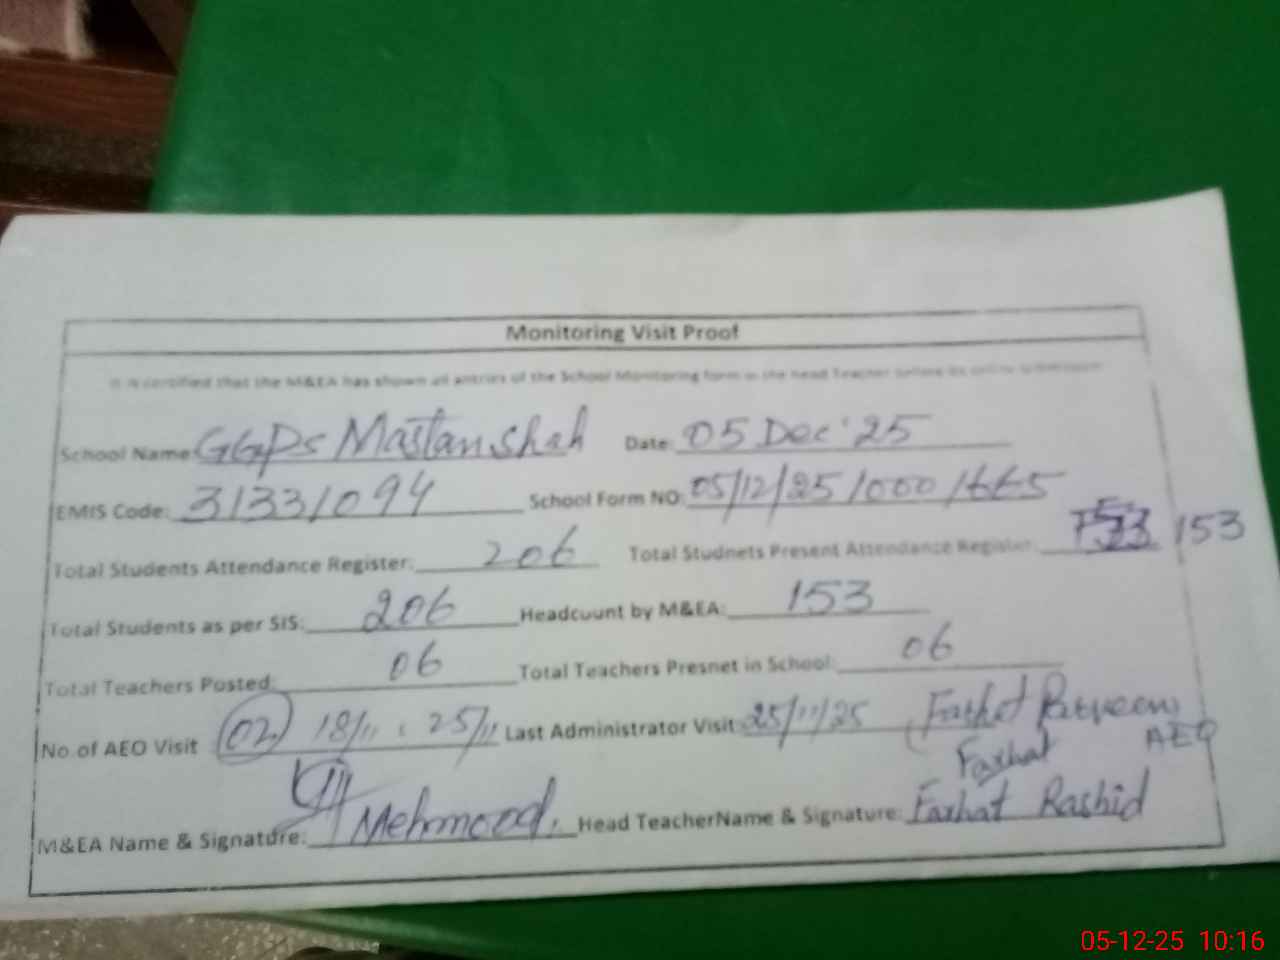 Monitoring Visit Proof
It is certified that the M&EA has shown all entries of the School Monitoring form to the head Teacher before its online submission
School Name: GGPS Mastan Shah Date: 05 Dec '25
EMIS Code: 31331094 School Form NO: 05/12/25/000/1665
Total Students Attendance Register: 206 Total Studnets Present Attendance Register: 153 153
Total Students as per SIS: 206 Headcount by M&EA: 153
Total Teachers Posted: 06 Total Teachers Presnet in School: 06
No of AEO Visit 02 18/11 : 25/11 Last Administrator Visit: 25/11/25 (Farhat Parveen
AEO
Farhat
M&EA Name & Signature: Mehmood. Head TeacherName & Signature: Farhat Rashid
05-12-25 10:16